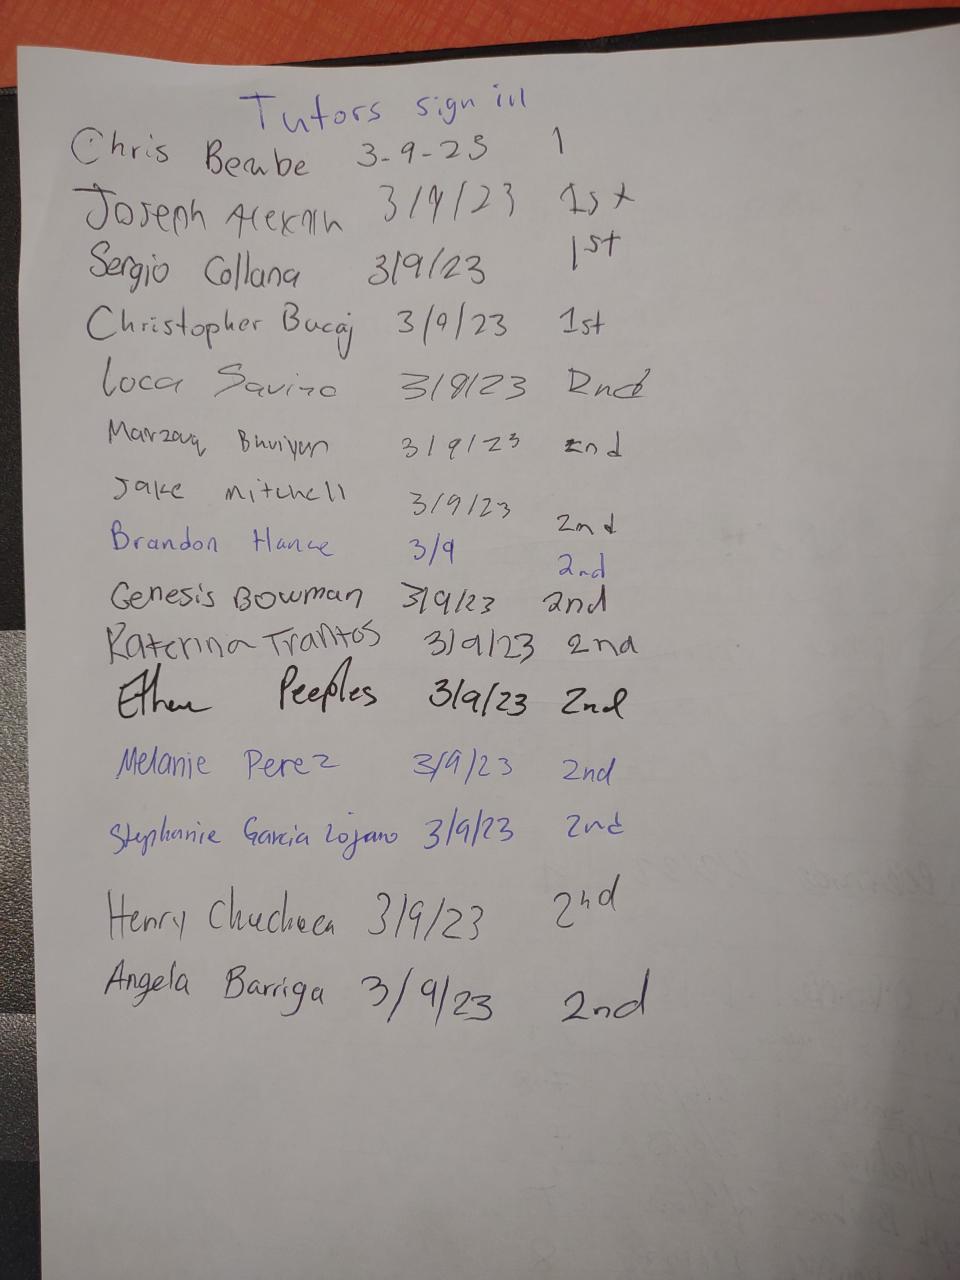 Tutors sign in
Chris Beaube 3-9-23 1
Joseph 3/9/23 1st
Sergio Collana 3/9/23 1st
Christopher Bucaj 3/9/23 1st
Loca Savino 3/9/23 2nd
Marzouq Bhuiyan 3/9/23 2nd
Jake Mitchell 3/9/23 2nd
Brandon Hance 3/9 2nd
Genesis Bowman 3/9/23 2nd
Katerina Trantos 3/9/23 2nd
Ethan Peeples 3/9/23 2nd
Melanie Perez 3/9/23 2nd
Stephanie Garcia Lojano 3/9/23 2nd
Henry 3/9/23 2nd
Angela Barriga 3/9/23 2nd